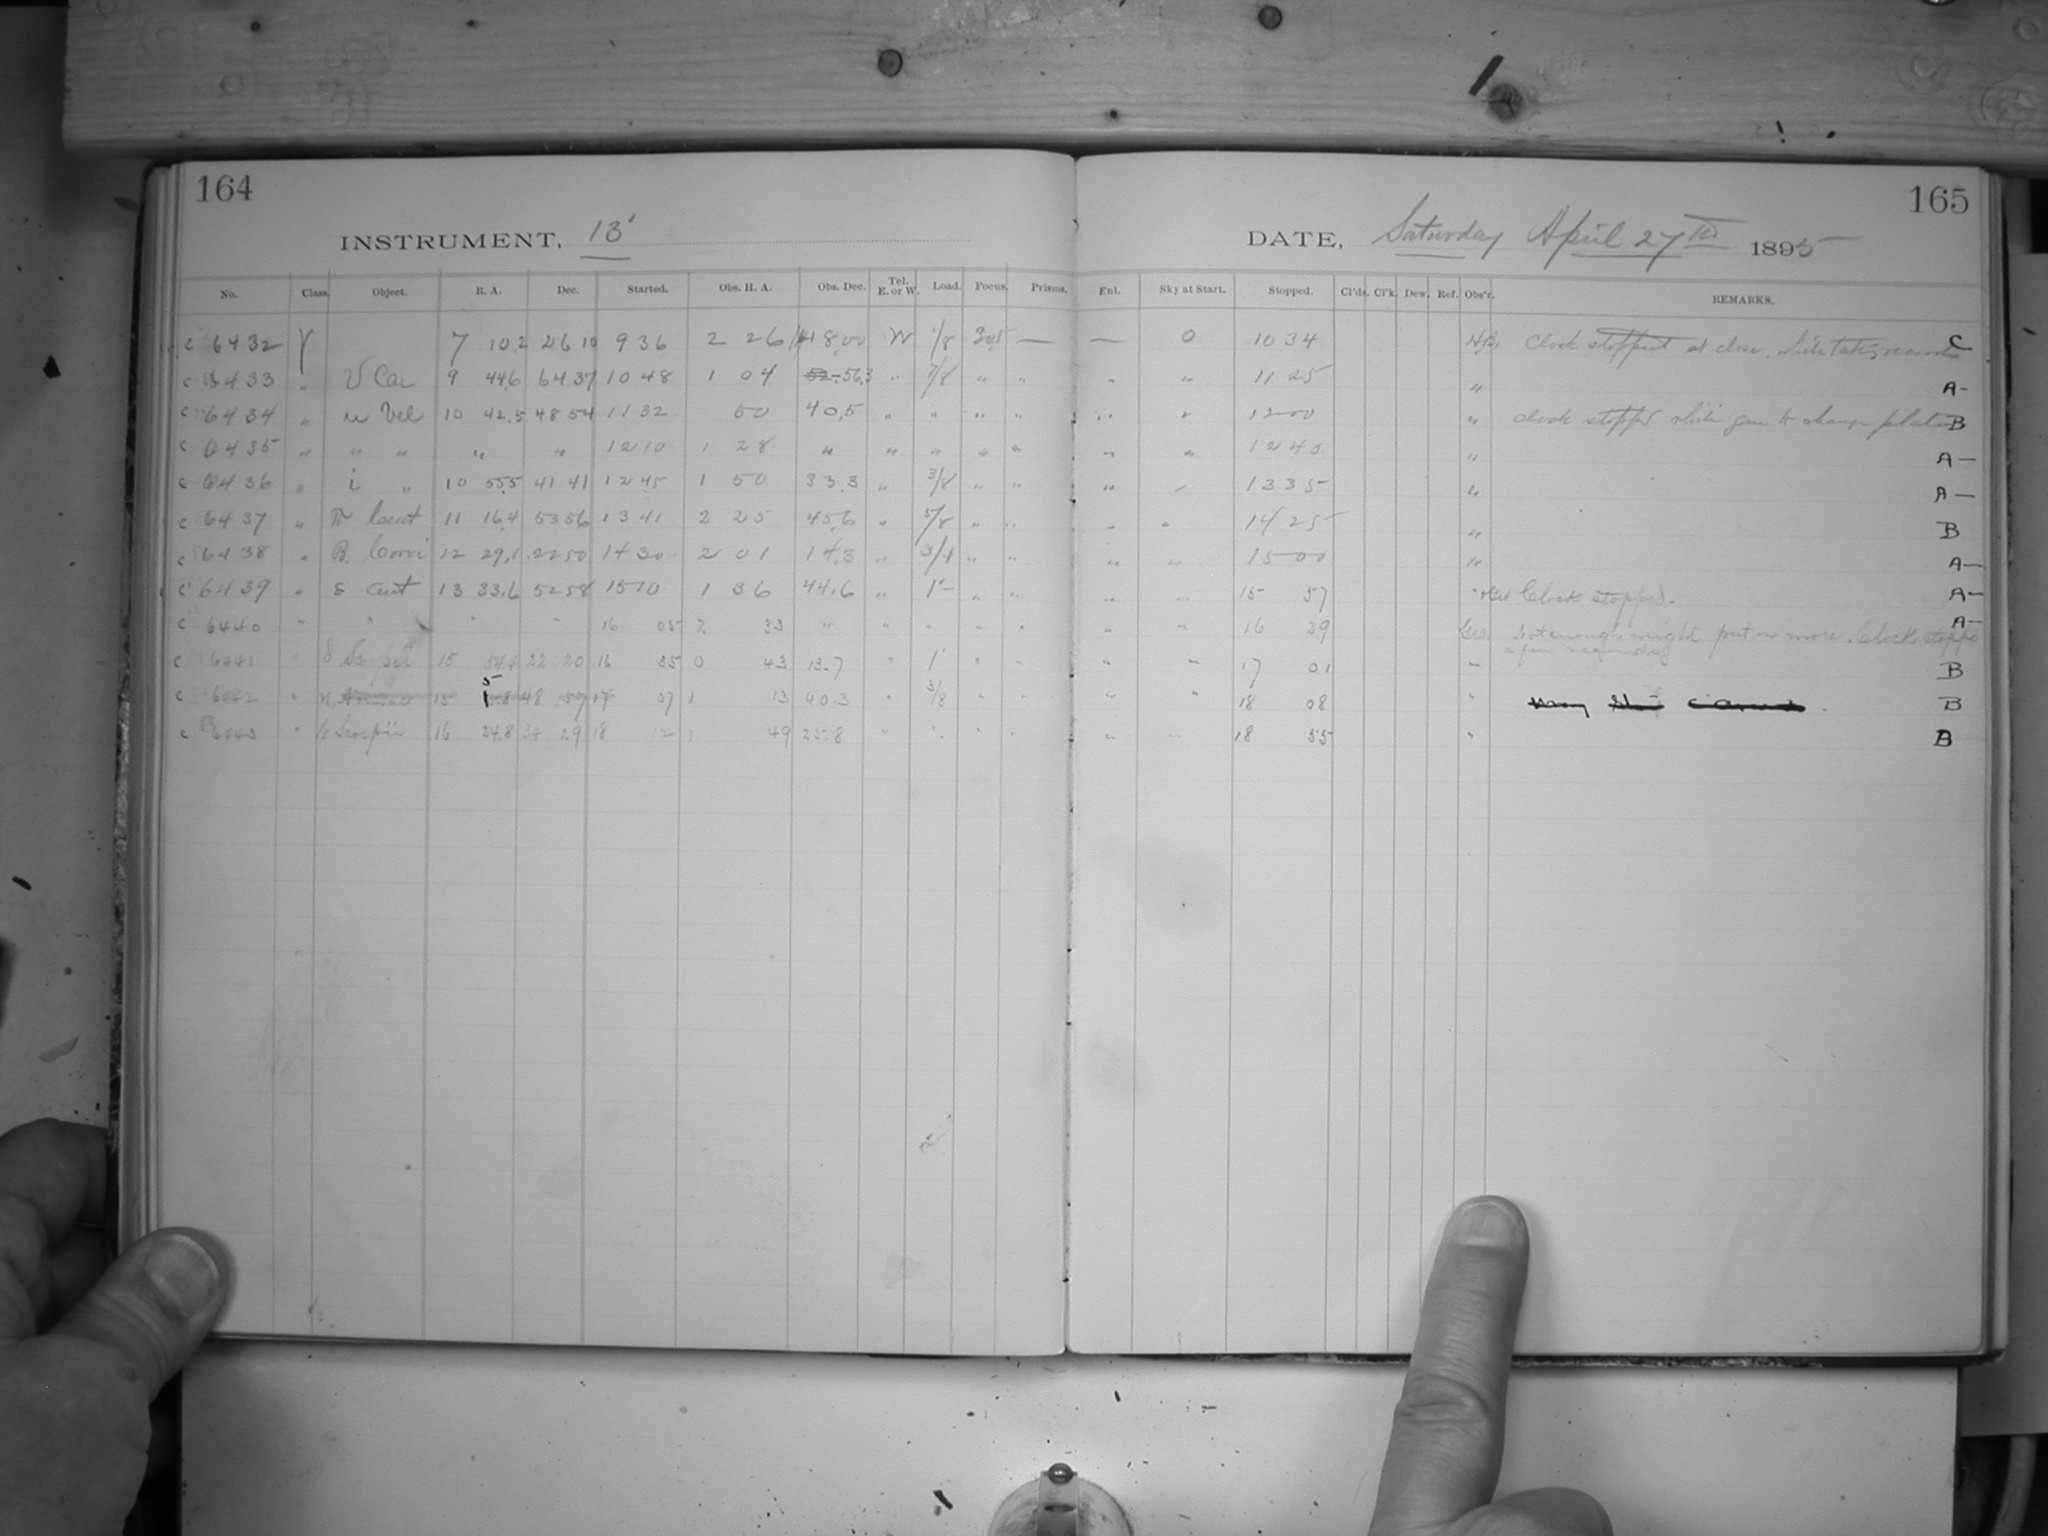 164
165
INSTRUMENT, 13"
DATE, Saturday April 27th 1895
No. Class. Object. R. A. Dec. Started. Obs. H. A. Obs. Dec. Tel. E. or W. Load. Focus. Prisms. Enl. Sky at Start. Stopped. Cl'ds. Cl'k. Dew. Ref. Obs'r. REMARKS.
C 6432 γ 7 10.2 26 10 9 36 2 26 18.00 W 1/8 — — 0 10 34 Clock stopped at close, while C
C 6433 " Car 9 44.6 64 37 10 48 1 04 52. 56.3 " 7/8 " " " " 11 25 " A-
C 6434 " u Vel 10 42.5 48 54 11 32 50 40.5 " " " " " " 12 00 " clock stopped while gone to change plates B
C 6435 " " " " " 12 10 1 28 " " " " " " " 12 40 " A-
C 6436 " i " 10 55.5 41 41 12 45 1 50 33.3 " 3/8 " " " " 13 35 " A-
C 6437 " π Cent 11 16.4 53 56 13 41 2 25 45.6 " 5/8 " " " " 14 25 " B
C 6438 " B. Corvi 12 29.1 22 50 14 30 2 01 14.3 " 3/4 " " " " 15 00 " A-
C 6439 " ε Cent 13 33.6 52 58 15 10 1 36 44.6 " 1 " " " " 15 57 " Clock stopped. A-
C 6440 " " " " 16 05 2 33 " " " " " " " 16 29 Not enough might put on more. Clock stopped A-
a few seconds
C 6441 " δ Scorpii 15 54.4 22 20 16 35 0 43 13.7 " 1 " " " " 17 01 " B
C 6442 " 15 5 1.8 48 57 17 07 1 13 40.3 " 3/8 " " " " 18 08 " B
C 6443 " Scorpii 16 24.8 34 29 18 12 1 49 25.8 " " " " " " 18 55 " B